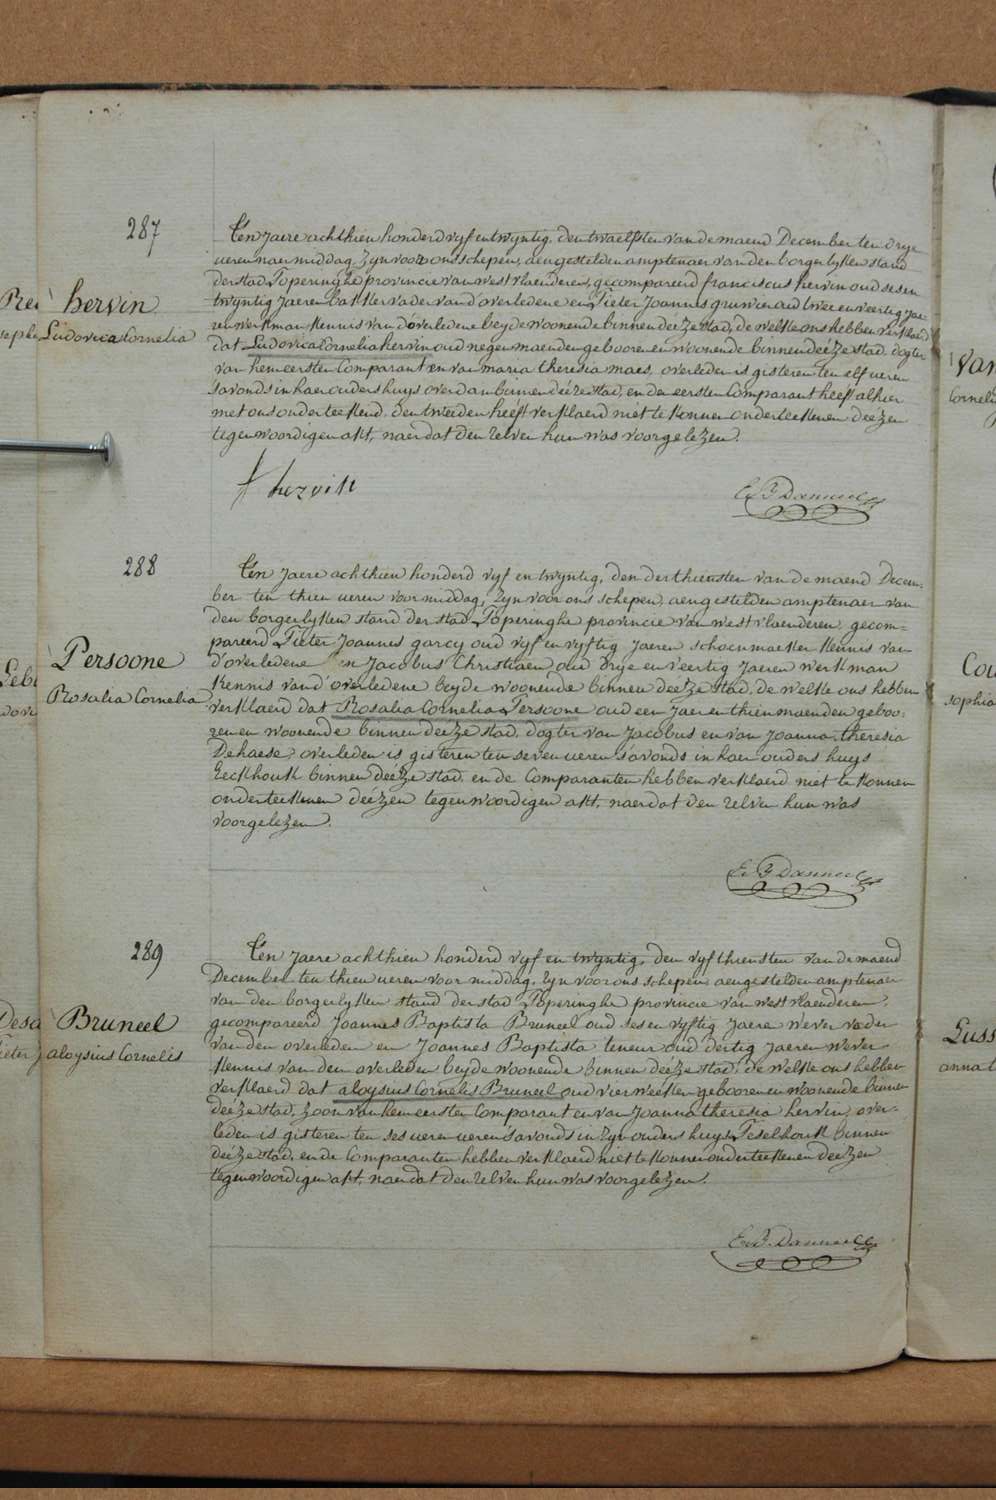 287
hervin
Ludovica Cornelia
Ten Jaere achthien honderd vyf en twyntig, den twaelfsten van de maend December ten drye
ueren naermiddag, zyn voor ons schepen, aengestelden amptenaer van den borgerlyken stand
der stad Poperinghe provincie van westvlaenderen, gecompareerd franciscus hervin oud ses en
twyntig jaeren bakker vader van d'overledene en Pieter Joannes gruwier oud twee en veertig jae-
ren werkman kennis van d'overledene beyde woonende binnen deéze stad, de welke ons hebben verklaerd
dat Ludovica Cornelia hervin oud negen maenden gebooren en woonende binnen deéze stad, dogter
van hem eersten Comparant en van maria theresia maes, overleden is gisteren ten elf ueren
s'avonds in haer ouders huys overdam binnen deéze stad, en den eersten Comparant heeft alhier
met ons onderteekend, den tweeden heeft verklaerd niet te konnen onderteekenen deézen
tegenwoordigen akt, naer dat den zelven hun was voorgelezen.
f hervin
288
Persoone
Rosalia Cornelia
Ten Jaere achthien honderd vyf en twyntig, den derthiensten van de maend Decem-
ber ten thien ueren voormiddag, zyn voor ons schepen, aengestelden amptenaer van
den borgerlyken stand der stad Poperinghe provincie van westvlaenderen, gecom-
pareerd Pieter Joannes garcy oud vyf en vyftig jaeren schoenmaeker kennis van
d'overledene en Jacobus Christiaen oud drye en veertig jaeren werkman
kennis van d'overledene beyde woonende binnen deéze stad, de welke ons hebben
verklaerd dat Rosalia Cornelia Persoone oud een jaer en thien maenden geboo-
ren en woonende binnen deéze stad, dogter van Jacobus en van Joanna theresia
Dehaese, overleden is gisteren ten seven ueren s'avonds in haer ouders huys
Eeckhouk binnen deéze stad, en de Comparanten hebben verklaerd niet te konnen
onderteekenen deézen tegenwoordigen akt, naer dat den zelven hun was
voorgelezen.
289
Bruneel
aloysius Cornelis
Ten Jaere achthien honderd vyf en twyntig, den vyfthiensten van de maend
December ten thien ueren voor middag, zyn voor ons schepen aengestelden amptenaer
van den borgerlyken stand der stad Poperinghe provincie van westvlaenderen,
gecompareerd Joannes Baptista Bruneel oud ses en vyftig jaeren wever vader
van den overleden en Joannes Baptista teneur oud dertig jaeren wever
kennis van den overleden beyde woonende binnen deéze stad, de welke ons hebben
verklaerd dat aloysius Cornelis Bruneel oud vier weeken gebooren en woonende binnen
deéze stad, zoon van hem eersten Comparant en van Joanna theresia hervin, over-
leden is gisteren ten ses ueren ueren s'avonds in zyn ouders huys Peselhouk binnen
deéze stad, en de Comparanten hebben verklaerd niet te konnen onderteekenen deézen
tegenwoordigen akt, naer dat den zelven hun was voorgelezen.